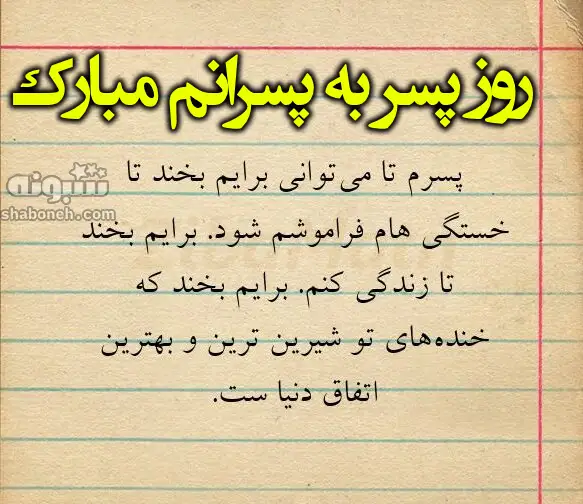 روز پسر به پسرانم مبارک
پسرم تا می‌توانی برایم بخند تا
شبونه
shaboneh.com
خستگی هام فراموشم شود. برایم بخند
تا زندگی کنم. برایم بخند که
خنده‌های تو شیرین ترین و بهترین
اتفاق دنیا ست.